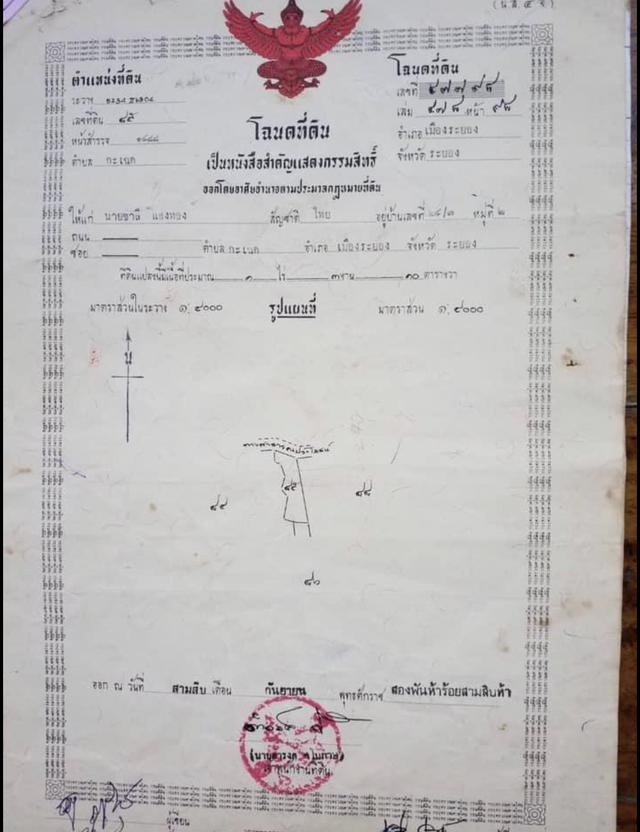 (น.ส. ๔ จ)
ตำแหน่งที่ดิน
ระวาง
เลขที่ดิน ๘๕
หน้าสำรวจ
ตำบล กะเฉด
โฉนดที่ดิน
เลขที่ ๔๗๗๙๘
เล่ม ๔๗๘ หน้า ๙๘
อำเภอ เมืองระยอง
จังหวัด ระยอง
โฉนดที่ดิน
เป็นหนังสือสำคัญแสดงกรรมสิทธิ์
ออกโดยอาศัยอำนาจตามประมวลกฎหมายที่ดิน
ให้แก่ นายชาลี แสงทอง สัญชาติ ไทย อยู่บ้านเลขที่ หมู่ที่ ๒
ถนน
ซอย ตำบล กะเฉด อำเภอ เมืองระยอง จังหวัด ระยอง
ที่ดินแปลงนี้มีเนื้อที่ประมาณ ๑ ไร่ ๓ งาน ๑๐ ตารางวา
มาตราส่วนในระวาง ๑:๔๐๐๐ รูปแผนที่ มาตราส่วน ๑:๔๐๐๐
น
ทางสาธารณประโยชน์
๘๕
๘๔
๘๘
๘๖
ออก ณ วันที่ สามสิบ เดือน กันยายน พุทธศักราช สองพันห้าร้อยสามสิบห้า
เจ้าพนักงานที่ดิน
ผู้เขียน